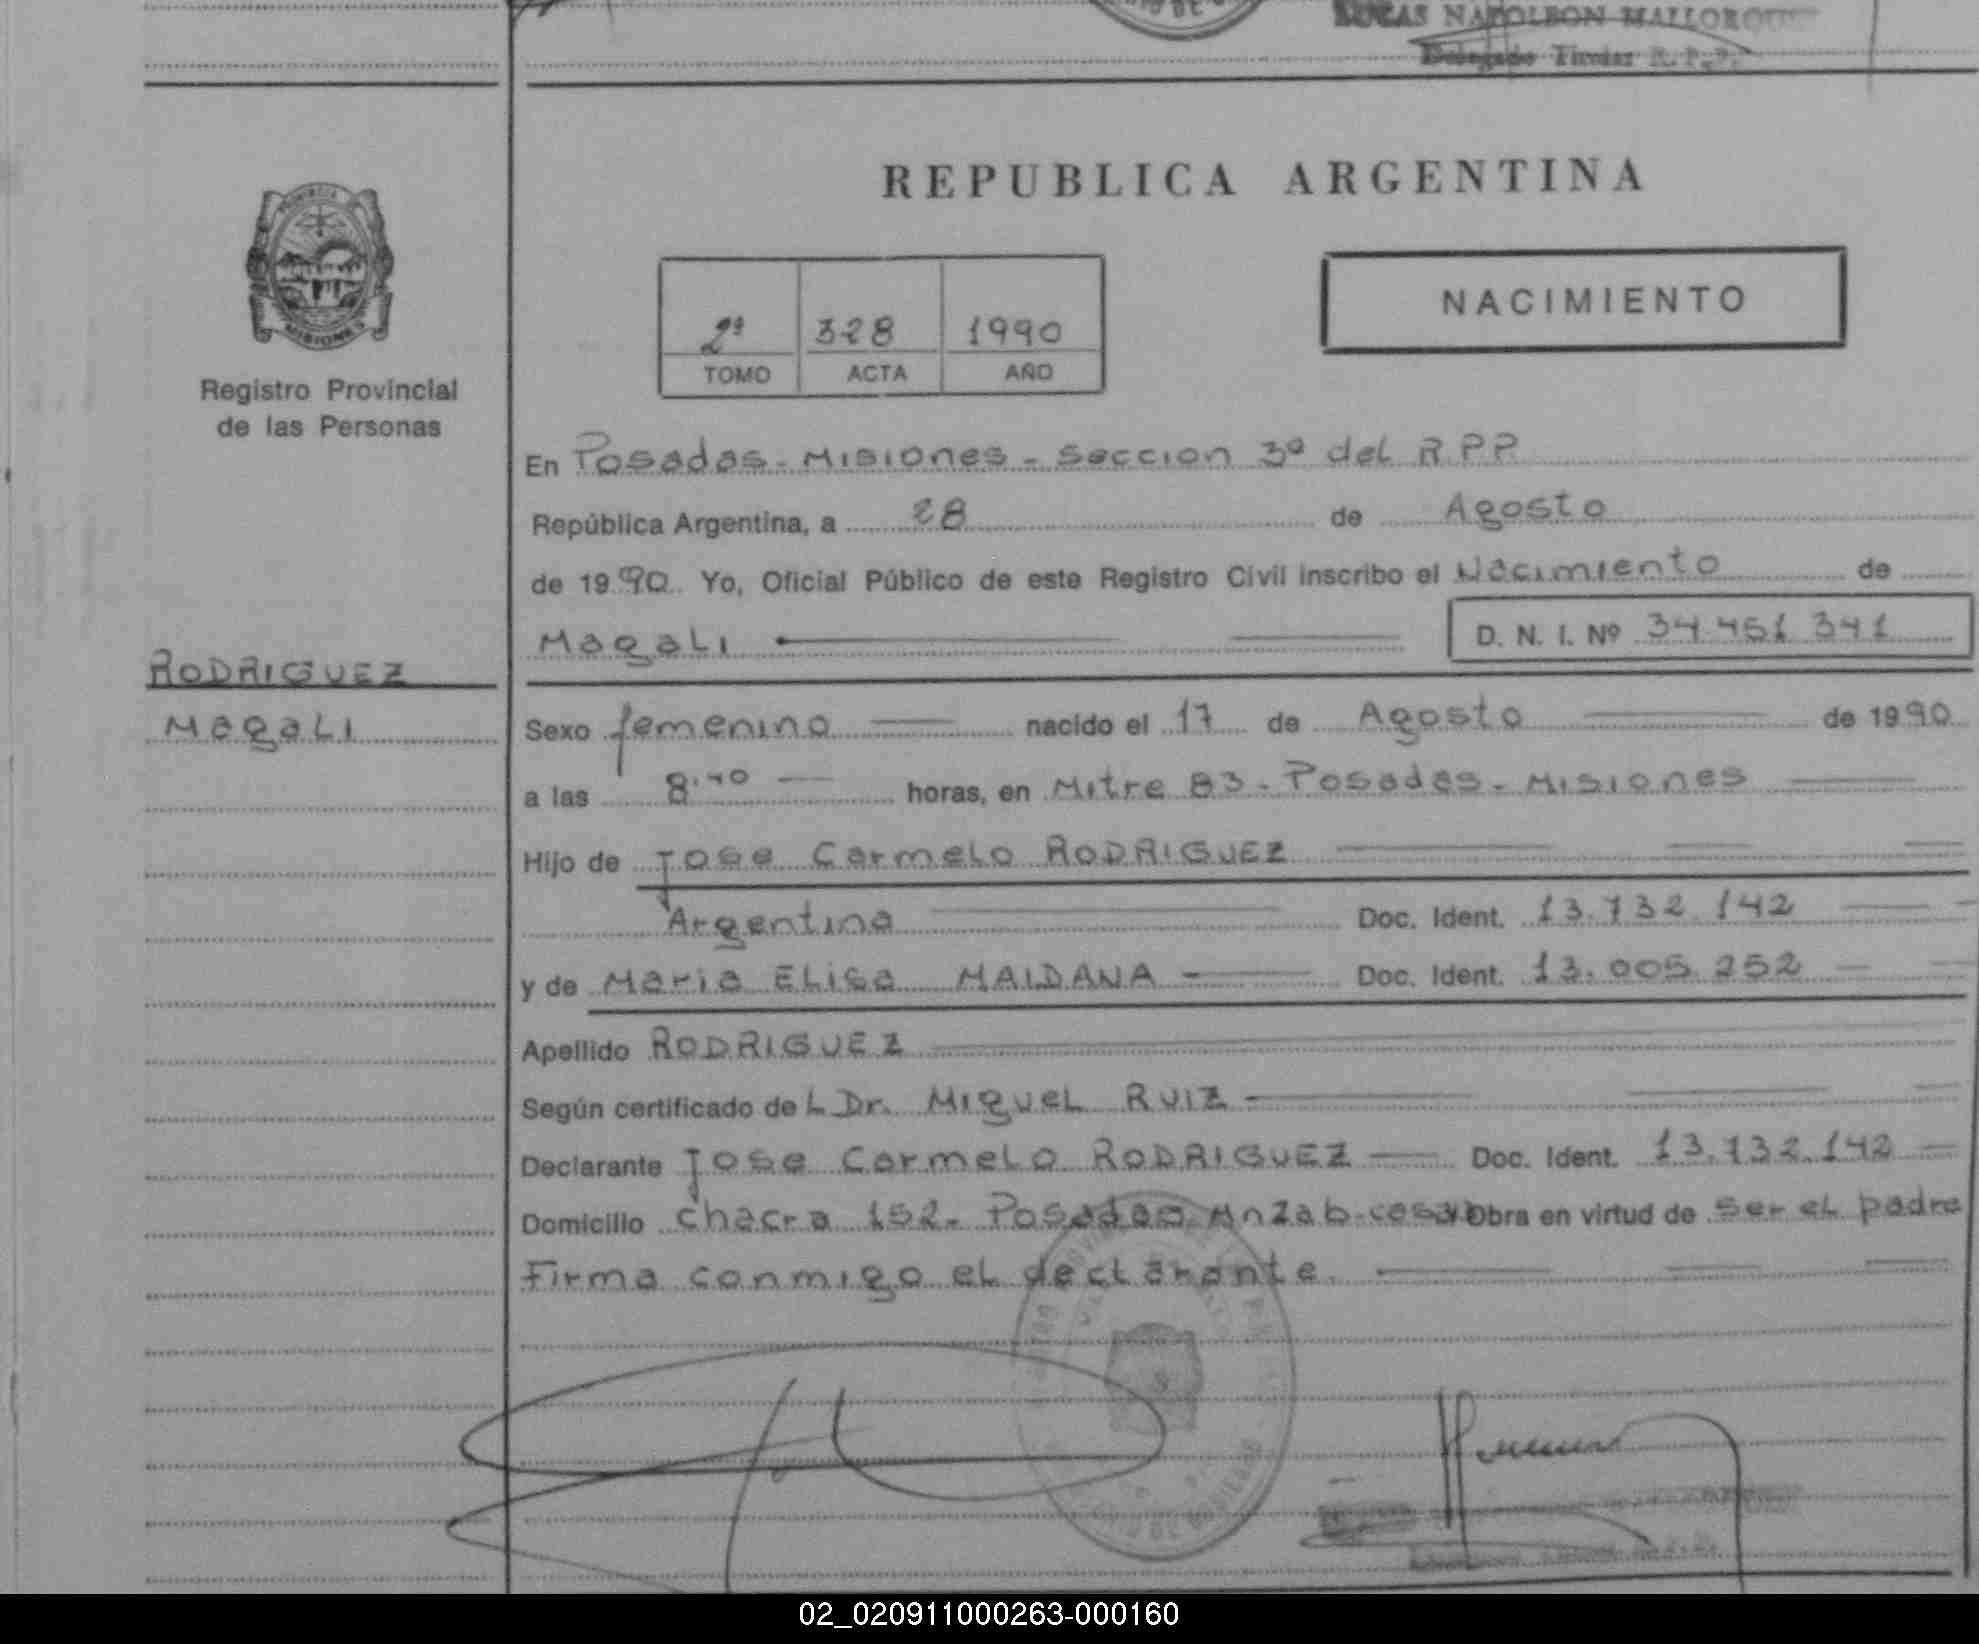 LUCAS NAPOLEON MALLORQUIN
Delegado Titular R. P. P.
REPUBLICA ARGENTINA
MISIONES
Registro Provincial
de las Personas
2º 328 1990
TOMO ACTA AÑO
NACIMIENTO
En Posadas - Misiones - Seccion 3º del R P P
República Argentina, a 28 de Agosto
de 1990 Yo, Oficial Público de este Registro Civil inscribo el Nacimiento de
Magali D. N. I. Nº 34.451.341
RODRIGUEZ
Magali
Sexo femenino nacido el 17 de Agosto de 1990
a las 8.40 horas, en Mitre 83 - Posadas - Misiones
Hijo de Jose Carmelo RODRIGUEZ
Argentina Doc. Ident. 13.732.142
y de Maria Elisa MAIDANA Doc. Ident. 13.005.252
Apellido RODRIGUEZ
Según certificado del Dr. Miguel RUIZ
Declarante Jose Carmelo RODRIGUEZ Doc. Ident. 13.732.142
Domicilio chacra 152 - Posadas Obra en virtud de ser el padre
Firma conmigo el declarante.
02_020911000263-000160